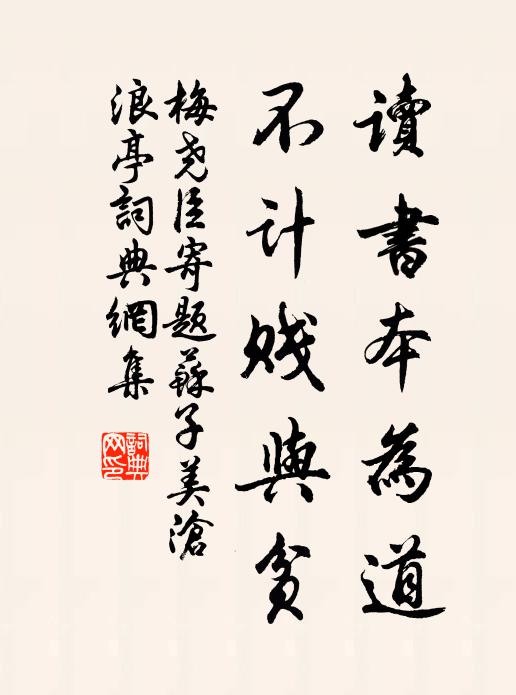 讀書本為道
不計賤與貧
梅尧臣寄题蘇子美滄
浪亭詞典網集
詞典网印